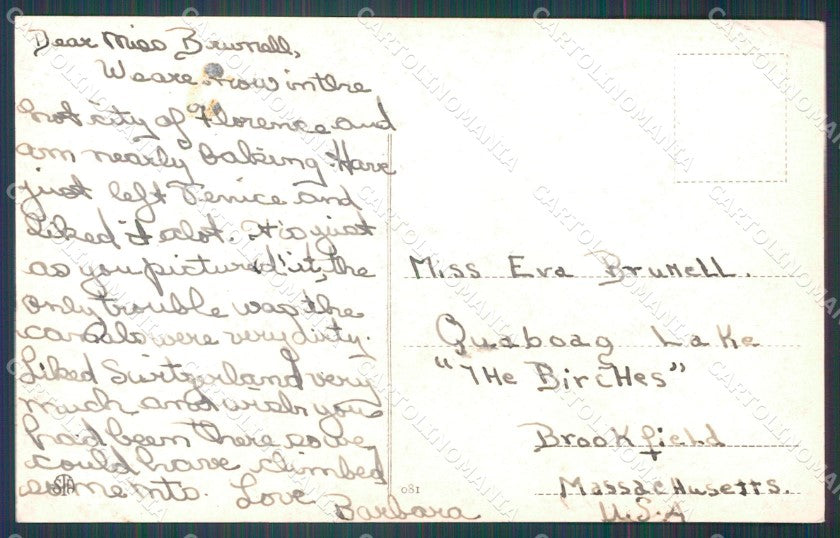 Dear Miss Brunell,
We are now in the
hot city of Florence and
am nearly baking. Have
just left Venice and
liked it alot. It is just
as you pictured it, the
only trouble was the
canals were very dirty.
Liked Switzerland very
much and wish you
had been there so we
could have climbed
some mts. Love
Barbara
Miss Eva Brunell.
Quaboag Lake
"The Birches"
Brookfield
Massachusetts.
U.S.A
081
CARTOLINOMANIA